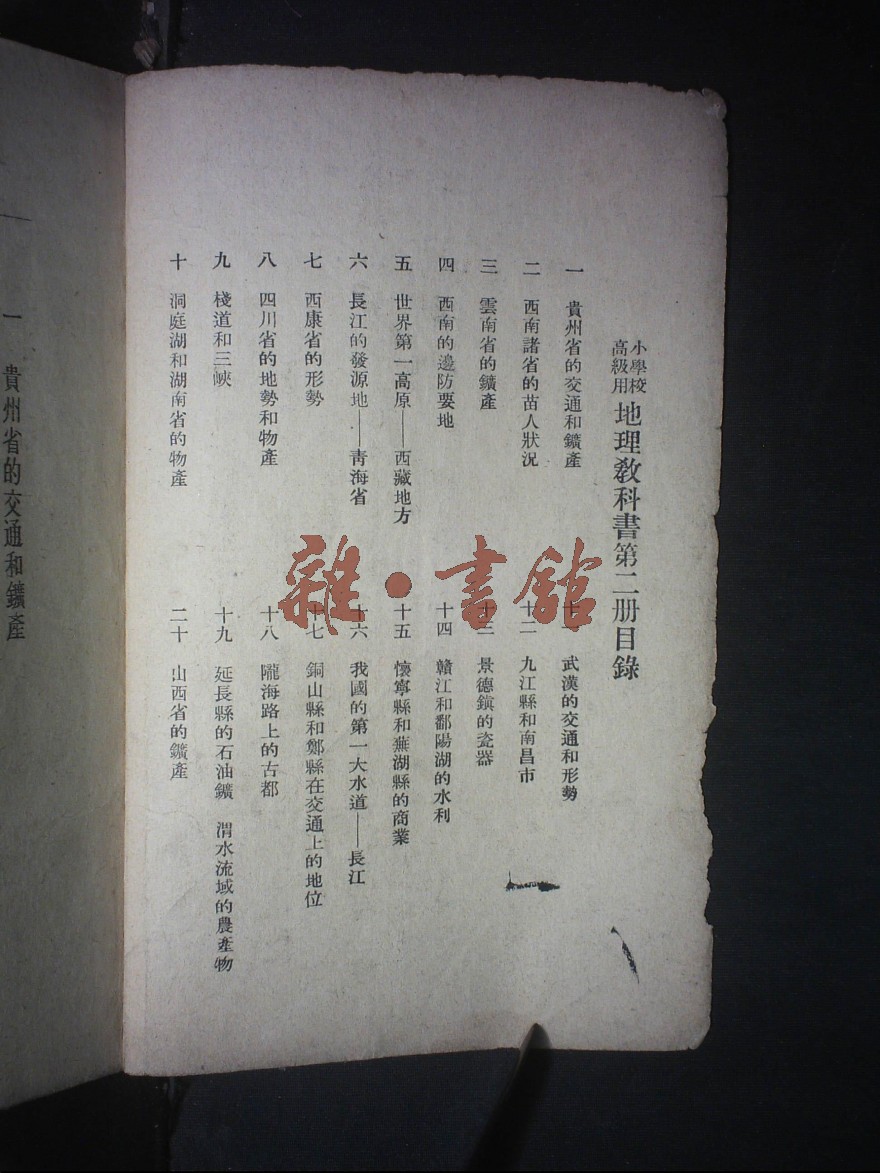 小學校
高級用
地理教科書第二册目錄
一 貴州省的交通和鑛產
二 西南諸省的苗人狀況
三 雲南省的鑛產
四 西南的邊防要地
五 世界第一高原——西藏地方
六 長江的發源地——青海省
七 西康省的形勢
八 四川省的地勢和物產
九 棧道和三峽
十 洞庭湖和湖南省的物產
十一 武漢的交通和形勢
十二 九江縣和南昌市
十三 景德鎮的瓷器
十四 贛江和鄱陽湖的水利
十五 懷寧縣和蕪湖縣的商業
十六 我國的第一大水道——長江
十七 銅山縣和鄭縣在交通上的地位
十八 隴海路上的古都
十九 延長縣的石油鑛 渭水流域的農產物
二十 山西省的鑛產
一 貴州省的交通和鑛產
雜·書館